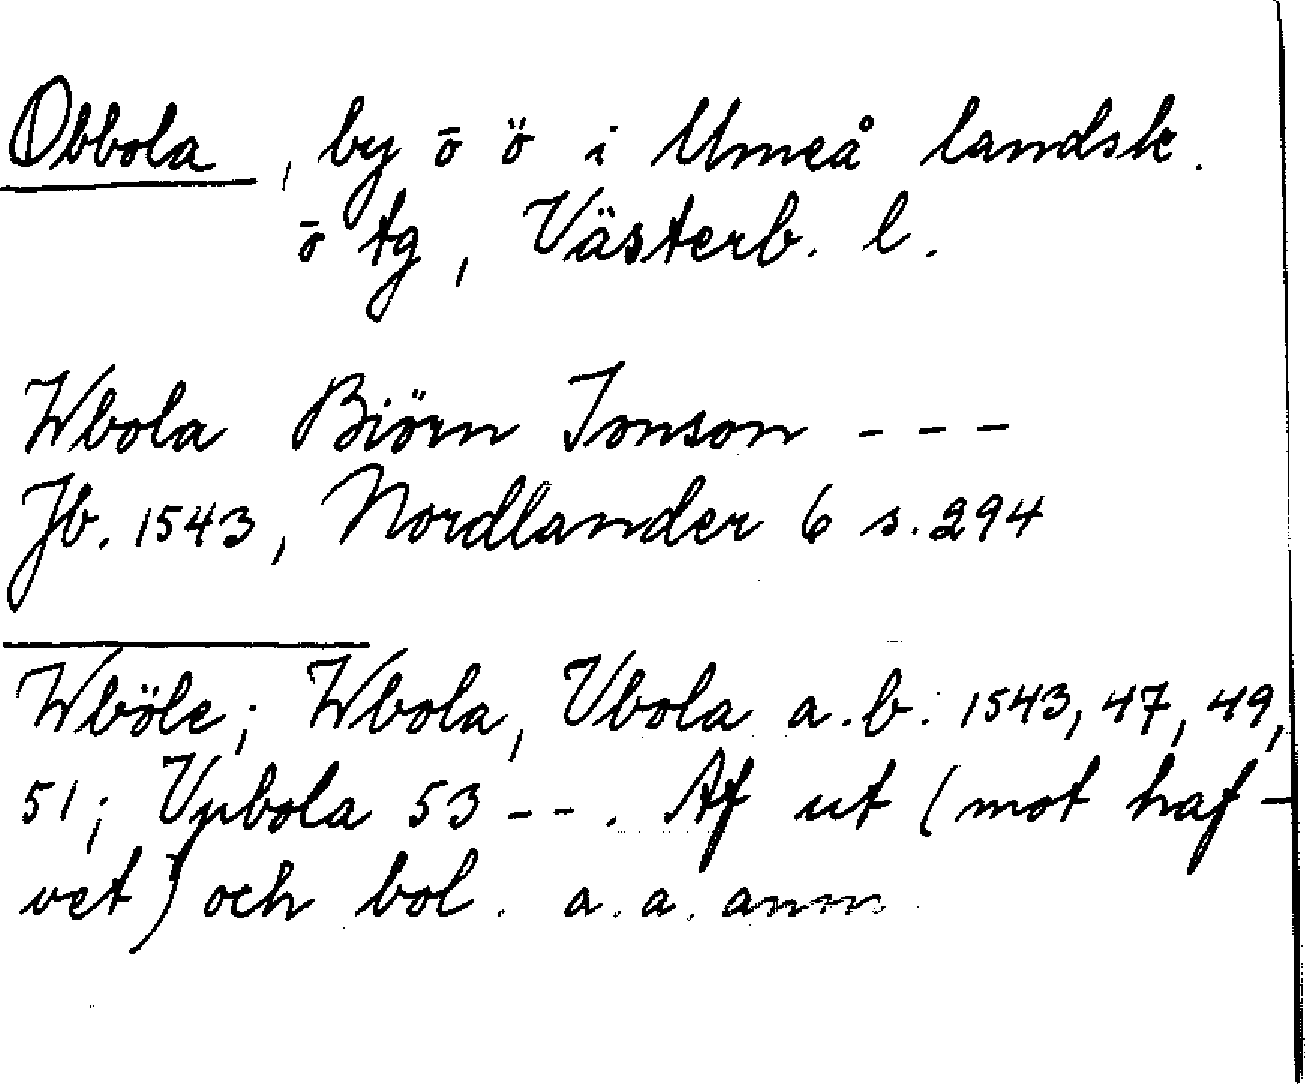 Obbola, by o̅ ö i Umeå landsk.
o̅ tg, Västerb. l.
Wbola Biörn Jonson - - -
Jb. 1543, Nordlander 6 s. 294
Wböle; Wbola, Vbola a.b. 1543, 47, 49,
51; Vpbola 53 - - . Af ut (mot haf-
vet) och bol. a. a. anm.